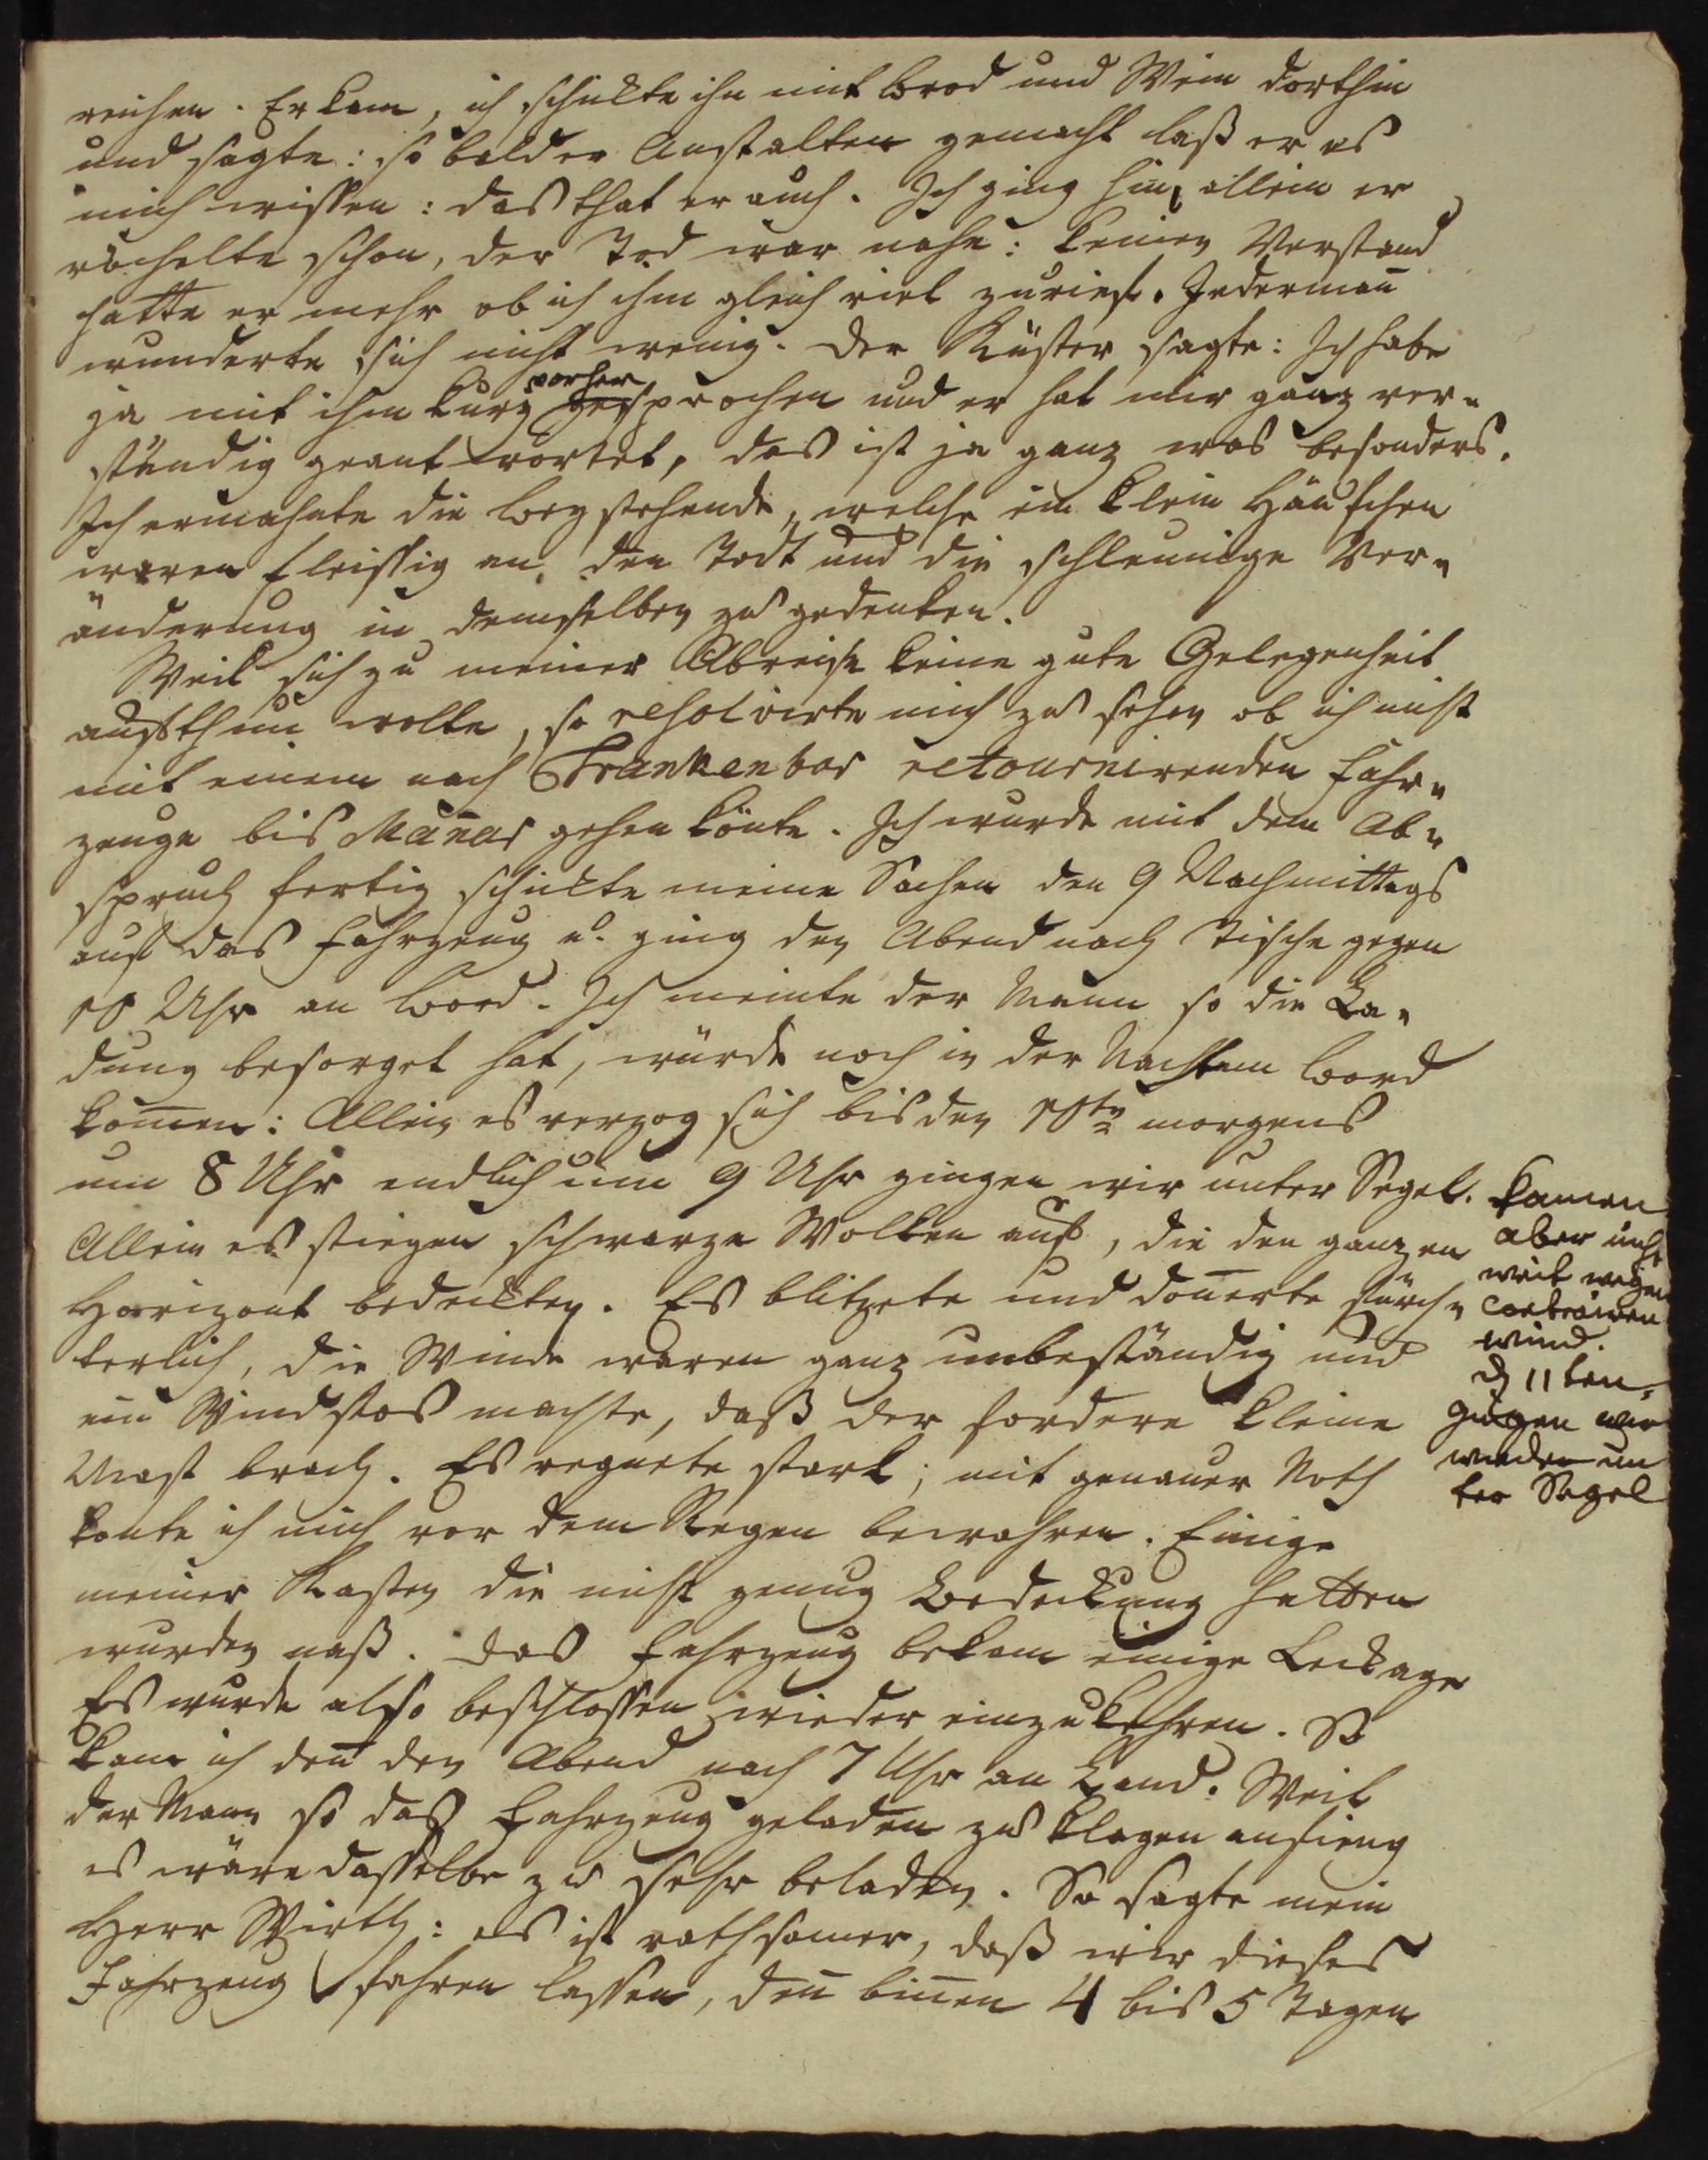 reichen. Er kam, ich schickte ihn mit Brod und Wein dorthin
und sagte: so bald er Anstalten gemacht laß er es
mich wissen: das that er auch. Ich ging hin, allein er
röchelte schon, der Tod war nahe: keinen Verstand
hatte er mehr ob ich ihm gleich viel zurief. Jederman̄
wunderte sich nicht wenig. Der Küster sagte: Ich habe
ja mit ihm kurz vorher gesprochen und er hat mir ganz ver-
ständig geantwortet, das ist ja ganz was besonders.
Ich ermahnte die Beystehende, welche ein klein Häufchen
waren fleissig an den Todt und die schleunige Ver-
änderung in demselben zu gedenken.
Weil sich zu meiner Abreise keine gute Gelegenheit
aufthun wolte, so resolvirte mich zu sehen ob ich nicht
mit einem nach Trankenbar retournirenden Fahr-
zeuge bis Man̄ar gehen könte. Ich wurde mit dem Ab-
spruch fertig schickte meine Sachen den 9 Nachmittags
auf das Fahrzeug u. ging den Abend nach Tische gegen
10 Uhr an Bord. Ich meinte der Mann so die La-
dung besorget hat, würde noch in der Nacht am Bord
kom̄en: Allein es verzog sich bis den 10ten morgens
um 8 Uhr endlich um 9 Uhr gingen wir unter Segel.
Allein es stiegen schwarze Wolken auf, die den ganzen
Horizont bedeckten. Es blitzete und don̄erte fürch-
terlich, die Winde waren ganz unbeständig und
ein Windstos machte, daß der fordere kleine
Mast brach. Es regnete stark; mit genauer Noth
konte ich mich vor dem Regen bewahren. Einige
meiner Kasten die nicht genug Bedeckung hatten
wurden naß. Das Fahrzeug bekam einige Leckage
Es wurde also beschlossen wieder einzukehren. So
kam ich den̄ den Abend nach 7 Uhr an Land. Weil
der Mann so das Fahrzeug geladen zu klagen anfieng
es wäre dasselbe zu sehr beladen. So sagte mein
Herr Wirth: es ist rathsamer, daß wir dieses
Fahrzeug fahren lassen, den̄ bin̄en 4 bis 5 Tagen
kamen
aber nicht
weit wegen
contrairen
wind.
d 11ten
gingen wir
wieder un
ter Segel